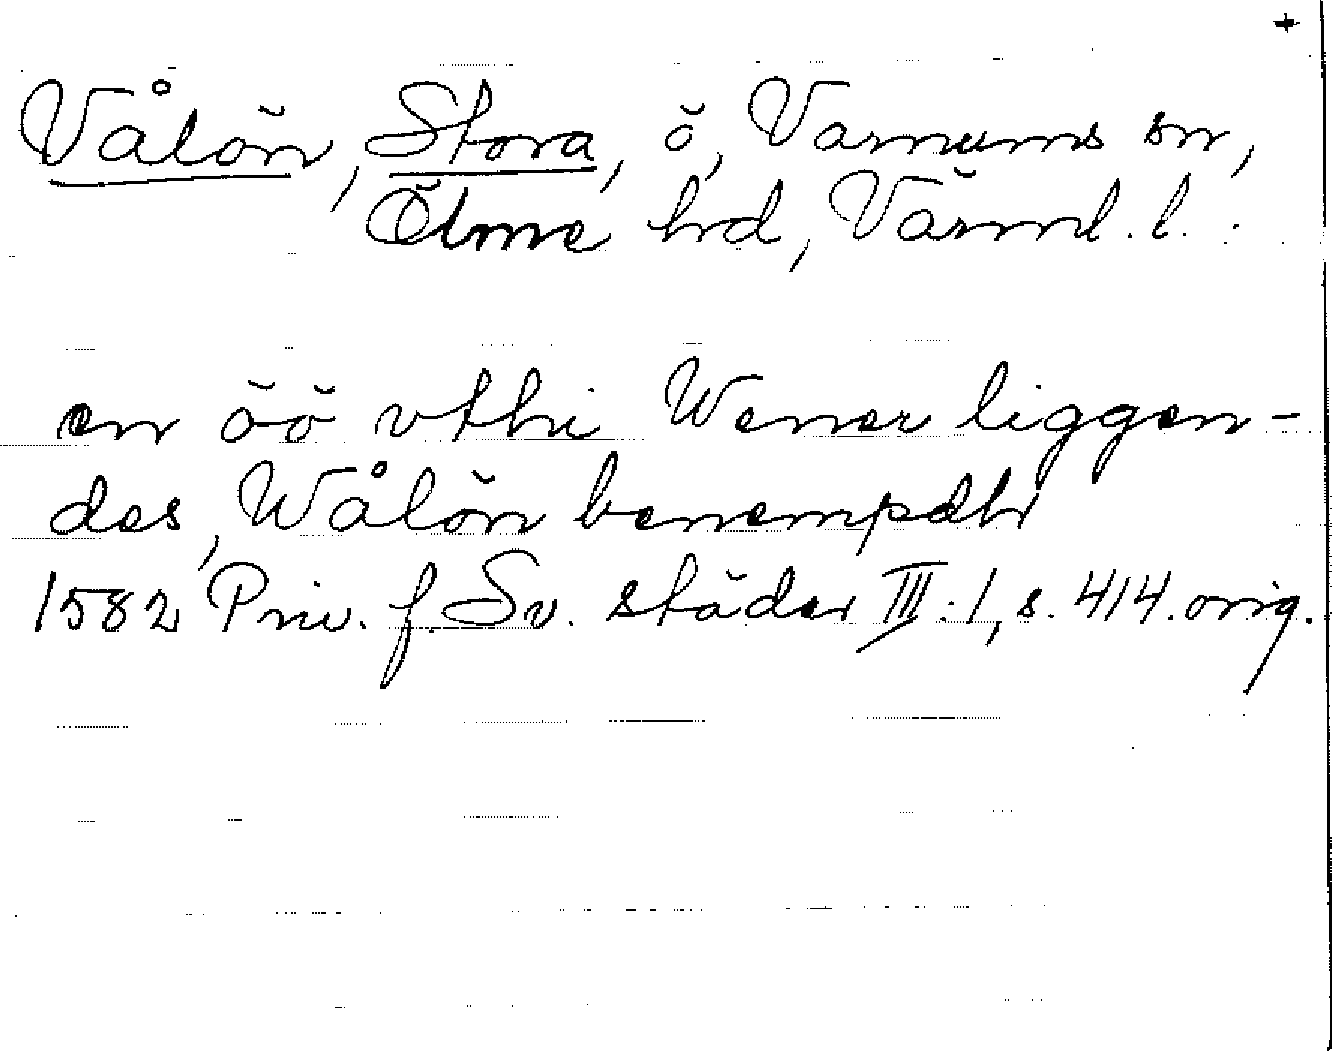 +
Vålön, Stora, ö, Varnums sn,
Ölme hd, Värml. l.
en öö vthi Wener liggen-
des, Wålön benempdh
1582 Priv. f. Sv. städer III:1, s. 414. orig.